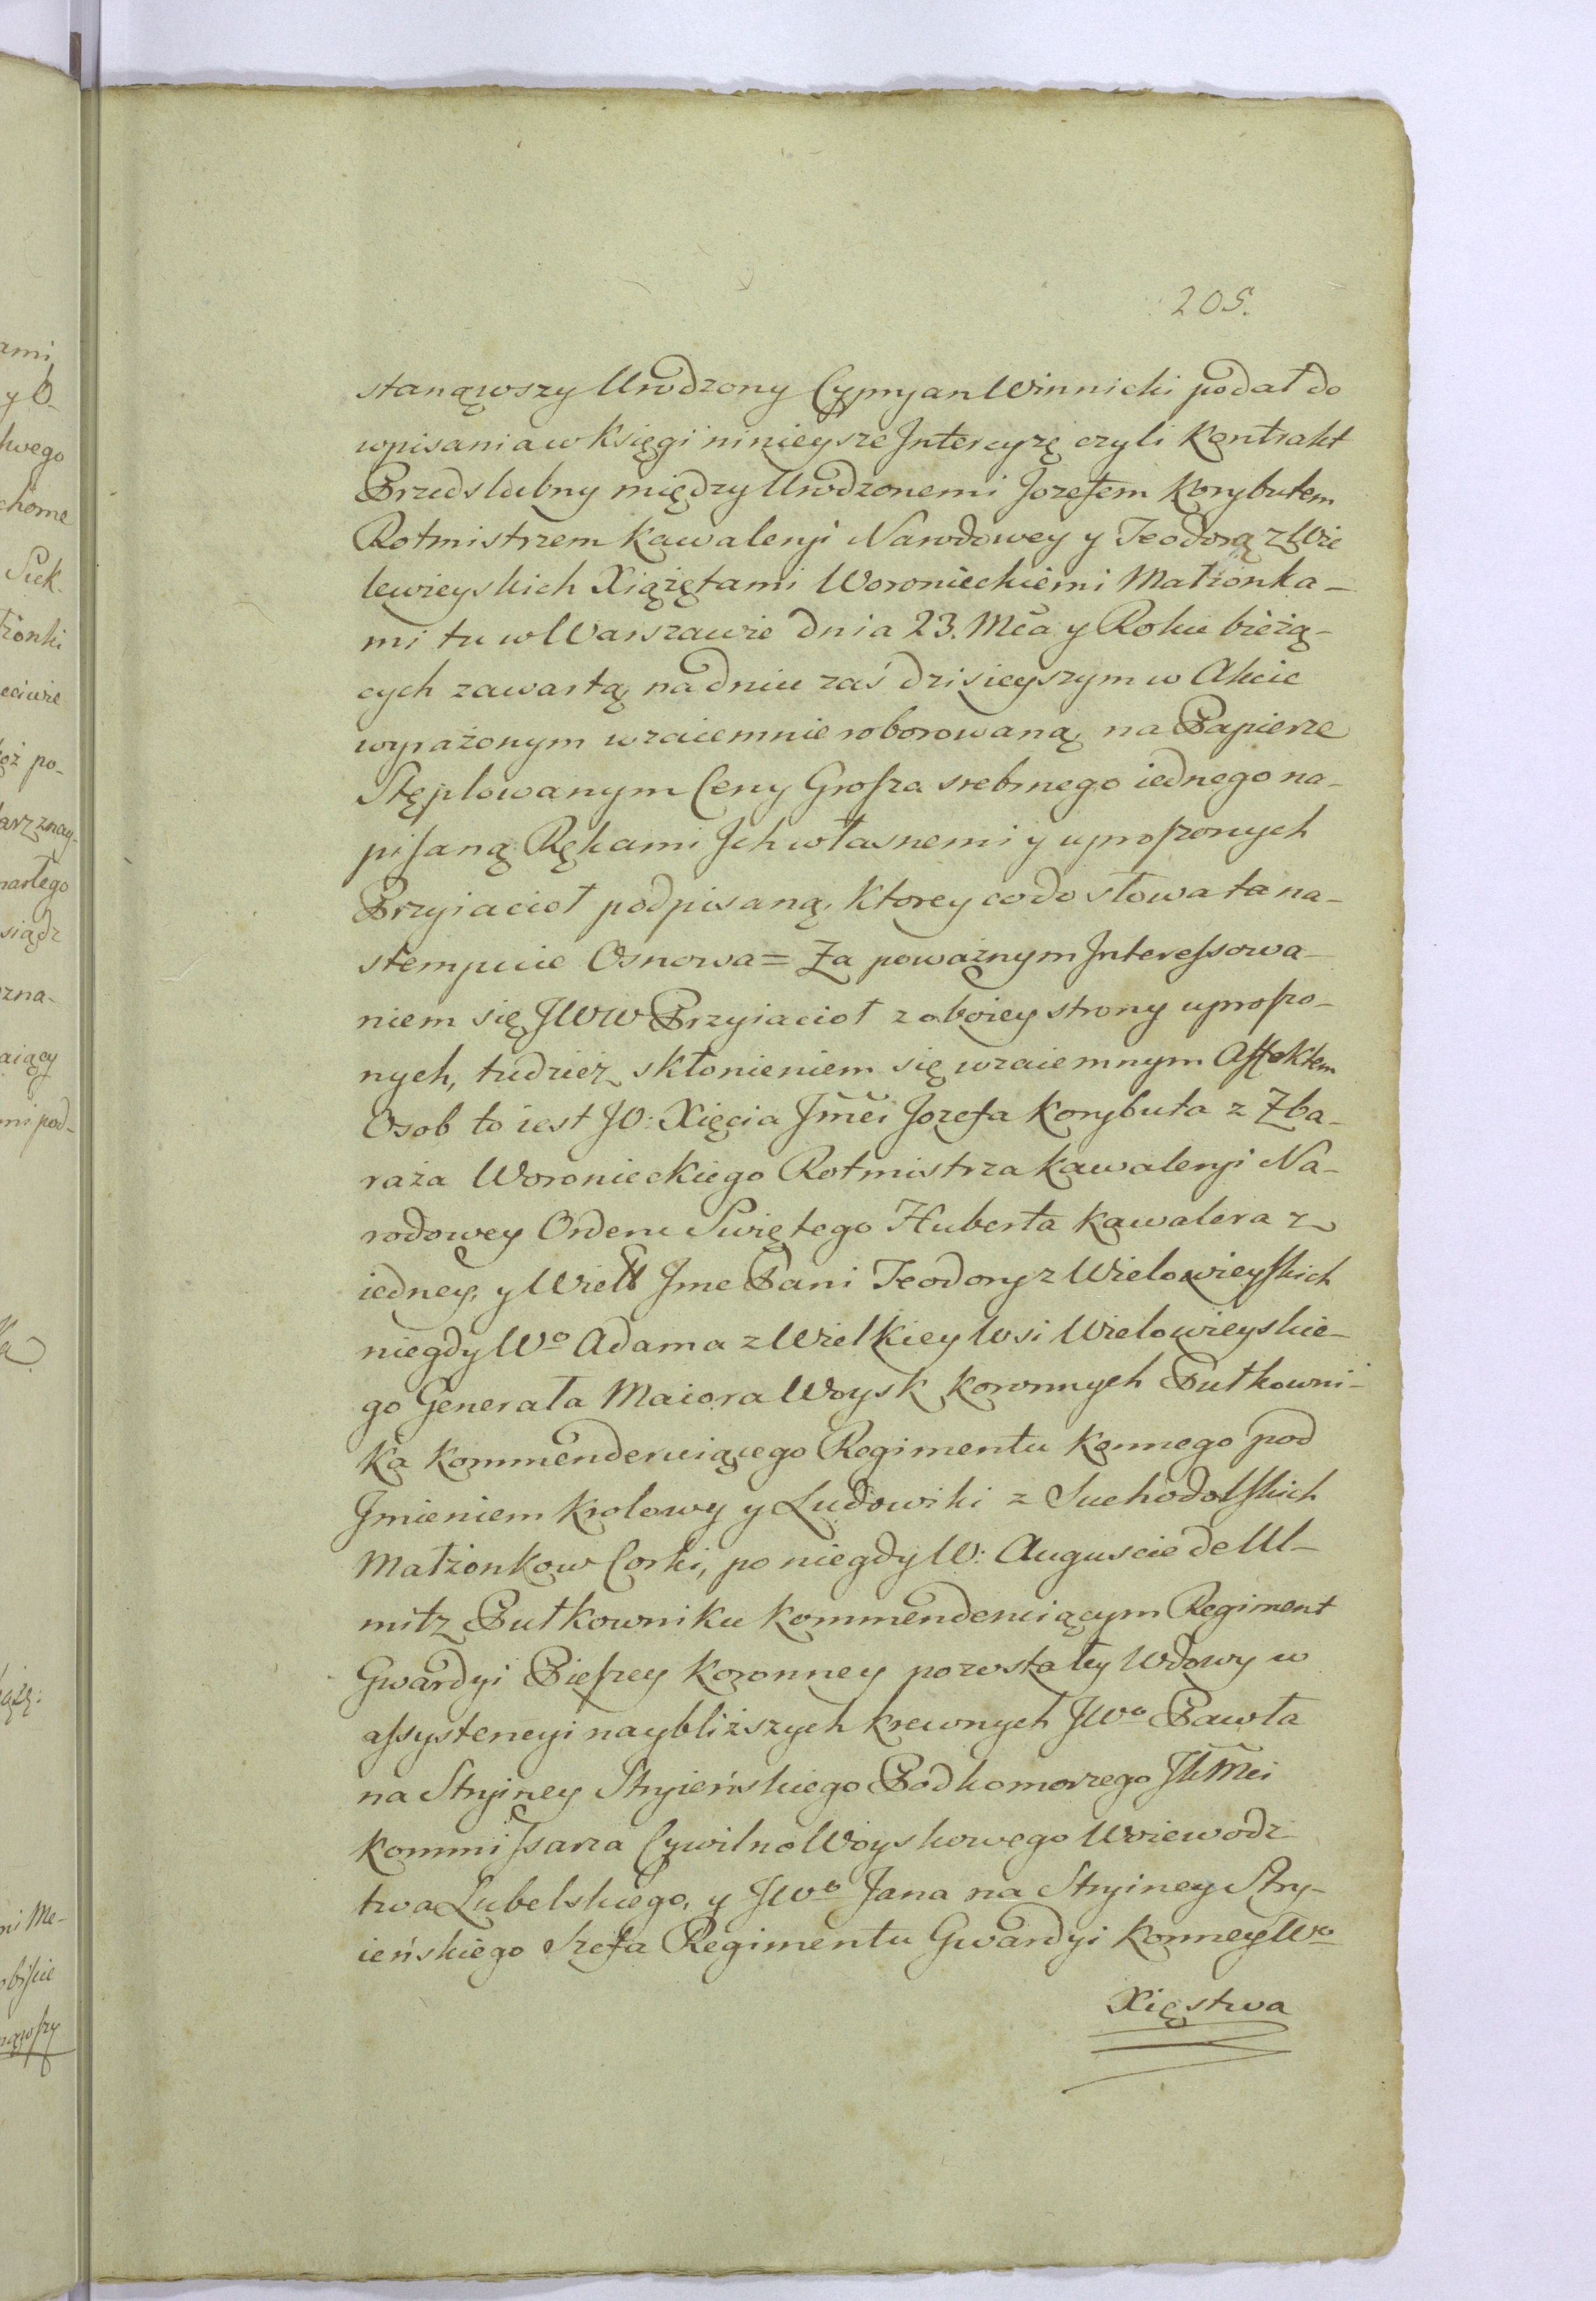 205.
stanąwszy Urodzony Cypryan Winnicki podał do
wpisania w Księgi ninieysze Intercyzę czyli Kontrakt
Przedslubny między Urodzonemi Jozefem Korybutem
Rotmistrzem Kawaleryi Narodowey y Teodorą z Wie
lewieyskich Xiążętami Woronieckiemi Małżonka-
mi tu w Warszawie dnia 23. Mca y Roku bieżą-
cych zawartą, na dniu zaś dzisieyszym w Akcie
wyrażonym wzaiemnie roborowaną, na Papierze
Stęplowanym Ceny Grosza srebrnego iednego na-
pisaną Rękami Ich własnemi y uproszonych
Przyiacioł podpisaną, ktorey co do słowa ta na-
stempuie Osnowa = Za poważnym Interessowa-
niem się JWW Przyiacioł z oboiey strony uproszo-
nych, tudzież skłonieniem się wzaiemnym Affektem
Osob to iest JO: Xięcia Jmci Jozefa Korybuta z Zba-
raża Woronieckiego Rotmistrza Kawaleryi Na-
rodowey Orderu Swiętego Huberta Kawalera z
iedney, y Wiel Jme Pani Teodory z Wielowieyskich
niegdy Wo Adama z Wielkiey Wsi Wielowieyskie-
go Generała Maiora Woysk Koronnych Pułkowni-
ka Kommenderuiącego Regimentu Konnego pod
Jmieniem Krolowy y Ludowiki z Suchodolskich
Małżonkow Corki, po niegdy W: Auguscie de Ul-
mitz Pułkowniku Kommenderuiącym Regiment
Gwardyi Pieszey Koronney pozostałey Wdowy w
assystencyi naybliższych krewnych JWo Pawła
na Stryiney Stryieńskiego Podkomorzego JKMci
Kommissarza Cywilno Woyskowego Wojewodz
twa Lubelskiego, y JWo Jana na Stryiney Stry-
ieńskiego Szefa Regimentu Gwardyi Konney Wo
Xięstwa